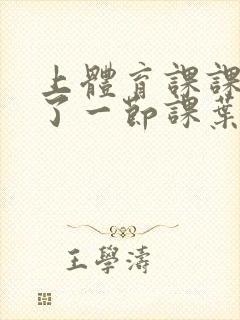 上體育課課
了一節課葉
王學濤